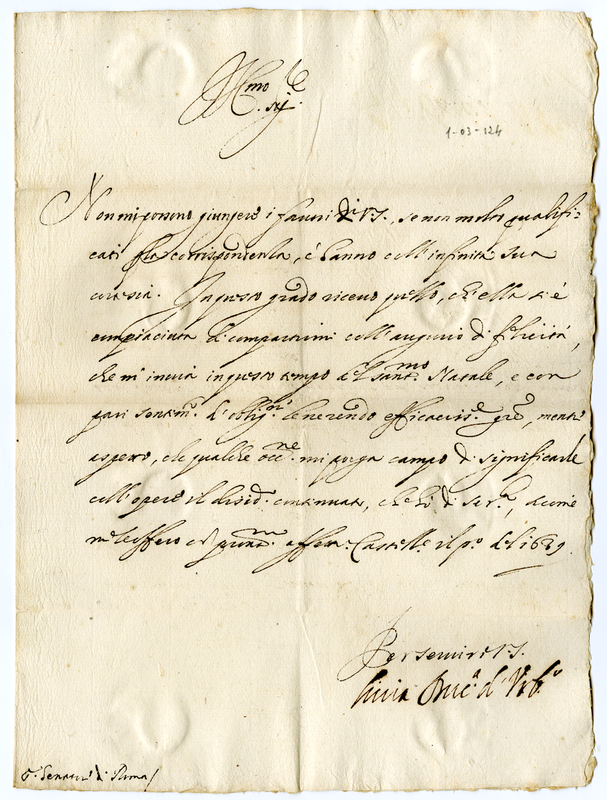 Ill.mo Sig.re
1-03-124
Non mi posono giungere i favori di V.S., se non molto qualifi-
cati corrispondenla, è hanno coll'infinità sua
cortesia. In questo grado ricevo quello, ch'ella s'è
compiaciuta di compartirmi coll'augurio di felicità,
che m'invia in questo tempo del sant.mo Natale, e con
pari sentim.to d'oblig.ne efficaciss.e gre, mentre
aspetto, che qualche occ.ne mi porga campo di significarle
coll'opere il desid.o continuato, che hò di ser.la, 
m'offero aff.ma Castello il p.o del 1639
Per servire V.S.
Livia Duc.a d'Urb.o
S. Senator di Roma